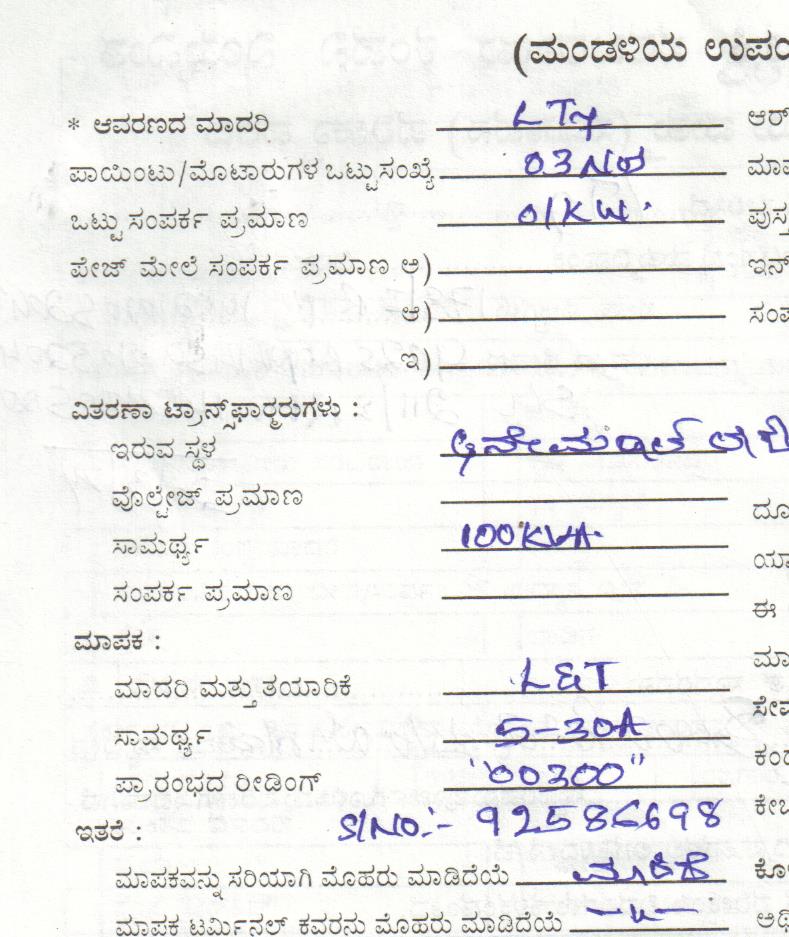 (ಮಂಡಳಿಯ ಉಪಯ
* ಆವರಣದ ಮಾದರಿ LT7 ಆರ್
ಪಾಯಿಂಟು/ಮೊಟಾರುಗಳ ಒಟ್ಟುಸಂಖ್ಯೆ 03 No ಮಾಪ
ಒಟ್ಟು ಸಂಪರ್ಕ ಪ್ರಮಾಣ 01KW. ಪುಸ್ತ
ಪೇಜ್ ಮೇಲೆ ಸಂಪರ್ಕ ಪ್ರಮಾಣ ಅ) ಇನ್
ಆ) ಸಂಪ
ಇ)
ವಿತರಣಾ ಟ್ರಾನ್ಸ್‌ಫಾರ್ಮರುಗಳು :
ಇರುವ ಸ್ಥಳ
ವೊಲ್ಟೇಜ್ ಪ್ರಮಾಣ ದೂ
ಸಾಮರ್ಥ್ಯ 100KVA. ಯಾ
ಸಂಪರ್ಕ ಪ್ರಮಾಣ ಈ
ಮಾಪಕ : ಮಾ
ಮಾದರಿ ಮತ್ತು ತಯಾರಿಕೆ L&T ಸೇವ
ಸಾಮರ್ಥ್ಯ 5-30A ಕಂಡ
ಪ್ರಾರಂಭದ ರೀಡಿಂಗ್ "00300" ಕೇಬ
ಇತರೆ : Sl No:- 92586698
ಮಾಪಕವನ್ನು ಸರಿಯಾಗಿ ಮೊಹರು ಮಾಡಿದೆಯೆ ಮಾಡಿದೆ ಕೊ
ಮಾಪಕ ಟರ್ಮಿನಲ್ ಕವರನು ಮೊಹರು ಮಾಡಿದೆಯೆ —"— ಅಥಿ